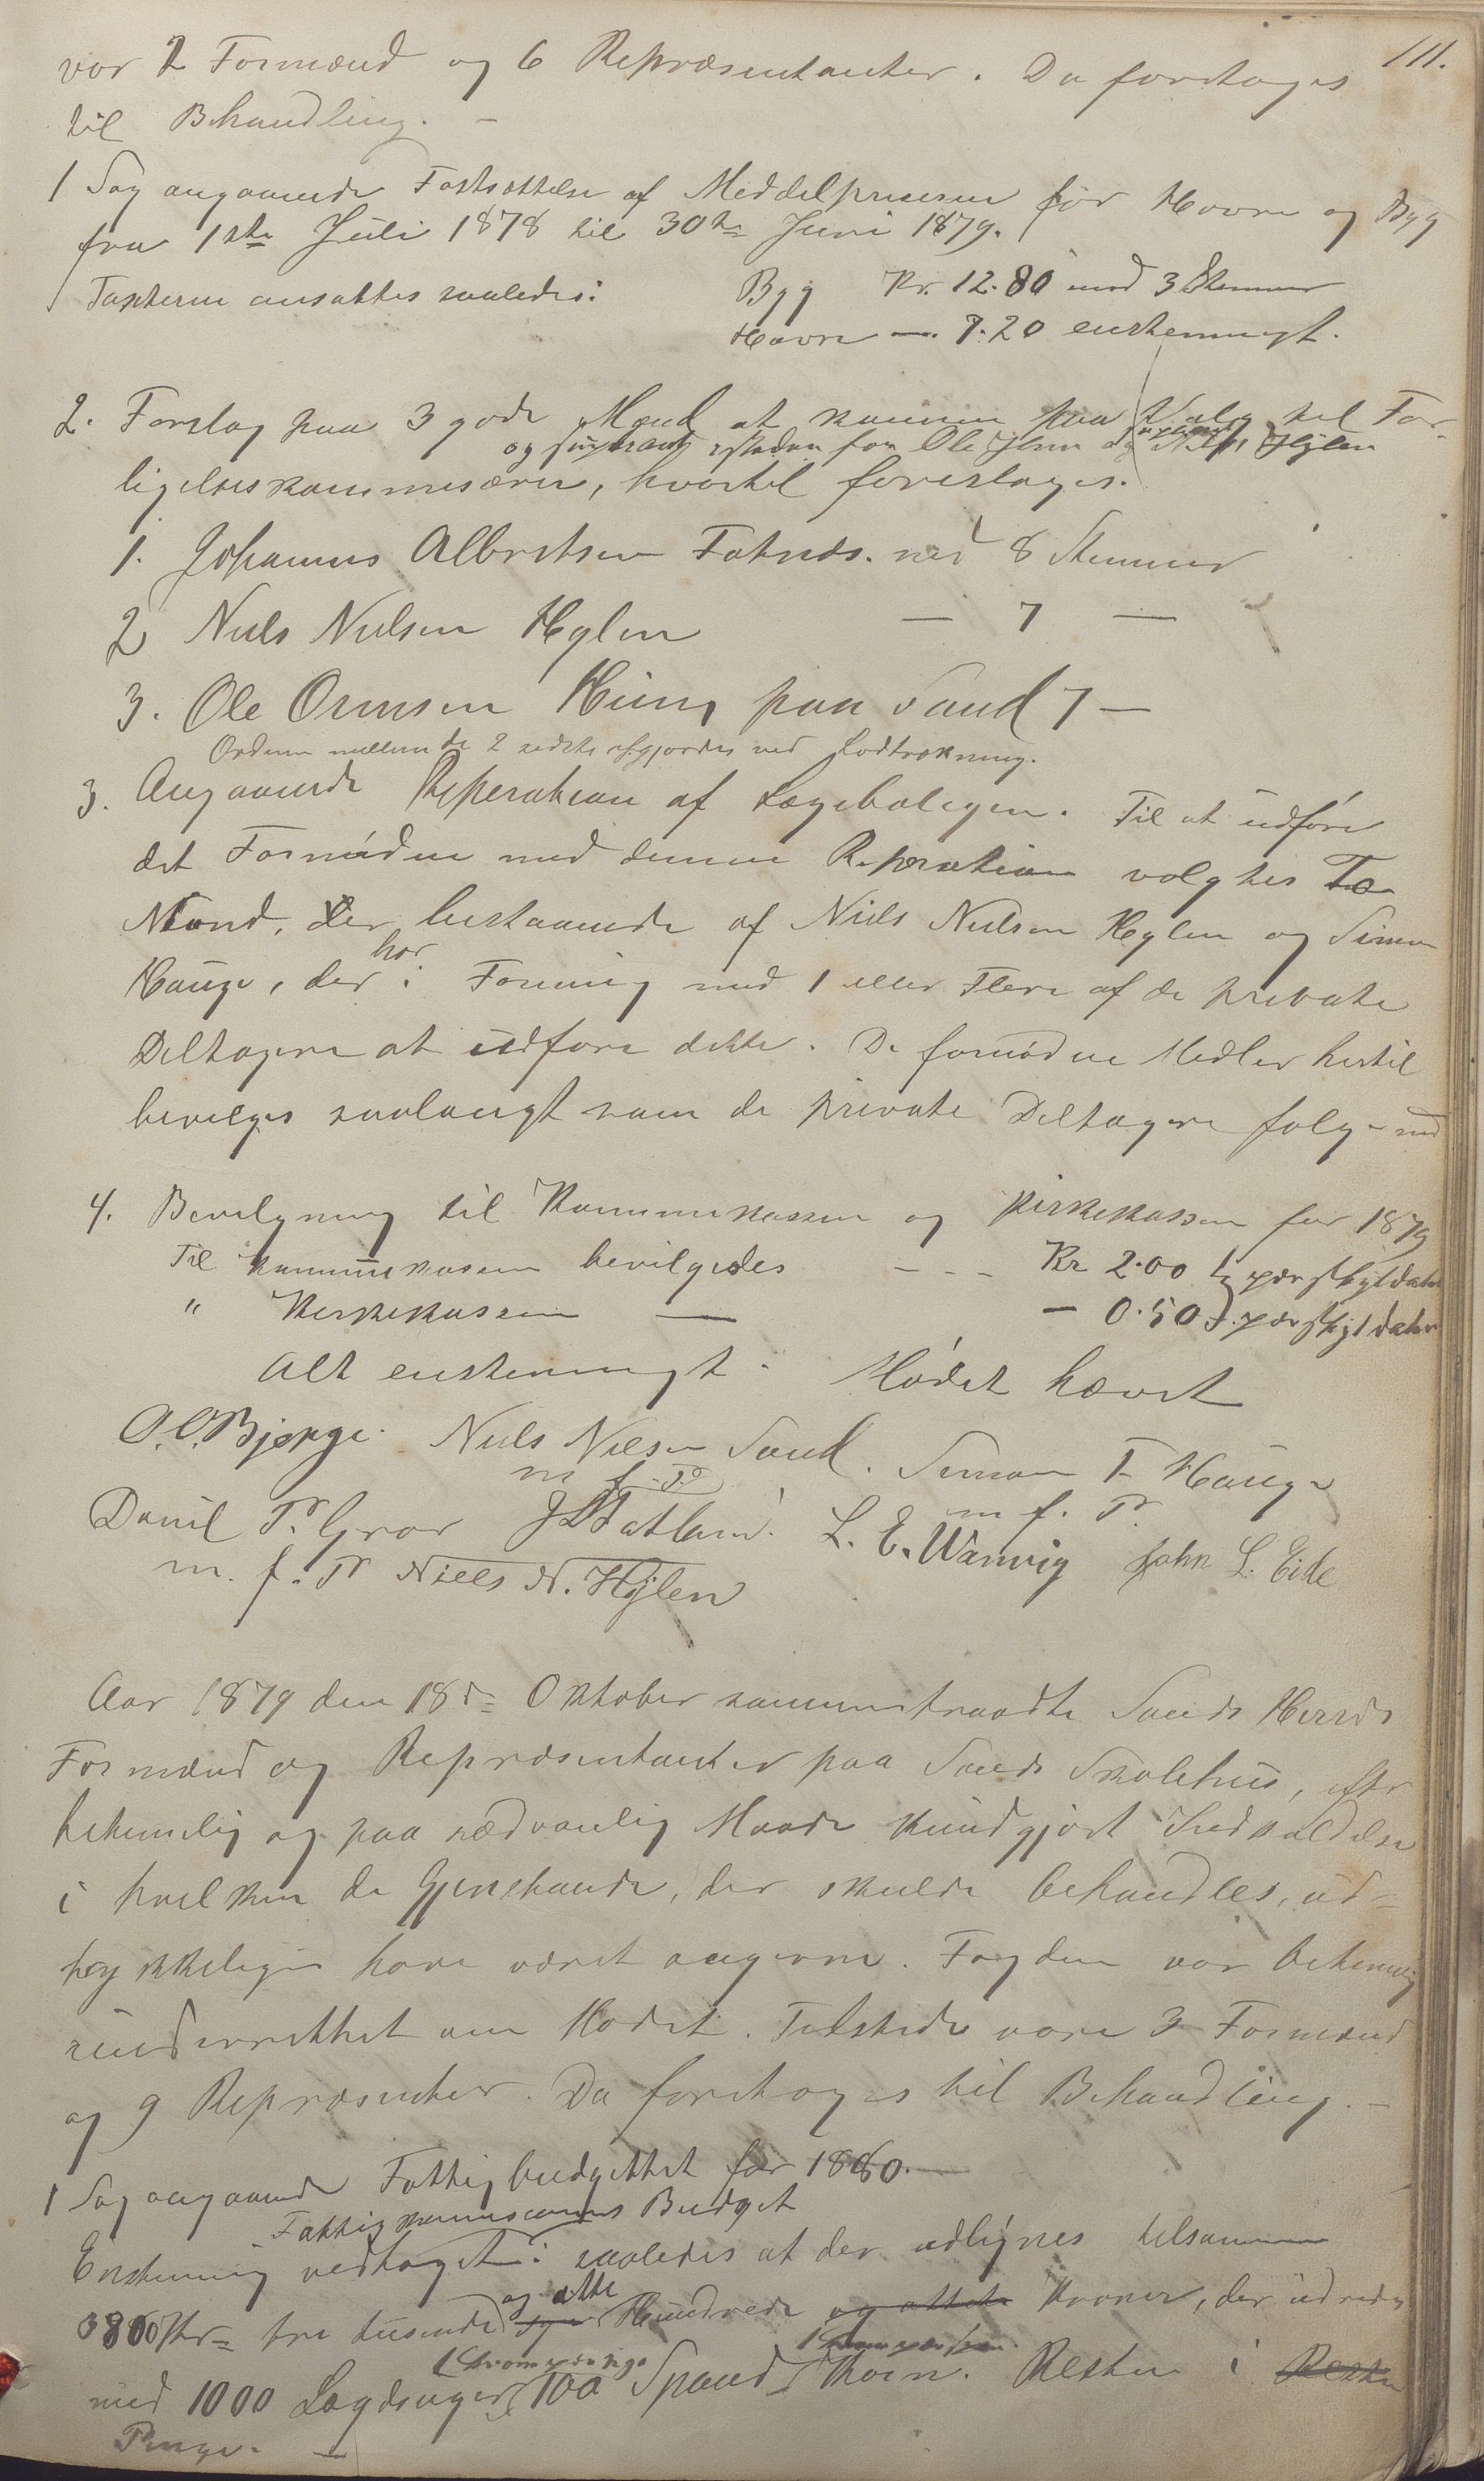 111.
var 2 Formænd og 6 Repræsentanter. Da foretoges
til Behandling. -
1 Sag angaaende Fastsættelse af Middelprisern for Havre og Byg
fra 1ste Juli 1878 til 30te Juni 1879.
Taxterne ansattes saaledes: Byg Kr. 12.80 med 3 Stemmer
Havre — 7.20 enstemmigt.
2. Forslag paa 3 gode Mænd at komme paa Valg til For-
og istedenfor Ole og Niels Hylen
ligelseskommisærer, hvortil foreslages.
1. Johannes Albretsen Fatnæs. ved 8 Stemmer
2 Niels Nielsen Hylen — 7 —
3. Ole Ormsen Hiim paa Sand 7 —
Ordenen mellem de 2 sidste afgjordes ved Lodtrækning.
3. Angaaende Reperation af Lægeboligen. Til at udføre
det Fornødne med denne Reperation valgtes To
Mænd, der bestaaende af Niels Nielsen Hylen og Simon
Hauge, der har i Forening med 1 eller Flere af de private
Deltagere at udføre dette. De fornødne Midler hertil
bevilges saalangt som de private Deltagere følge med
4. Bevilgning til Kommunekassen og Kirkekassen for 1879
Til Kommunekassen bevilgedes - - - Kr 2.00 per Skyldaler
" Kirkekassen — — 0.50 per Skyldaler
Alt enstemmigt. Mødet hævet
O. O. Bjørge. Niels Nielsen Sand. Simon T. Hauge
m f. P. m f. P.
Daniel P. Grov J Fatland. L. E. Wanvig John L. Eide
m. f. P Niels N. Hylen
Aar 1879 den 18de Oktober sammentraadte Sands Herreds
Formænd og Repræsentanter paa Sands Skolehus, efter
betimelig og paa sædvanlig Maade kundgjort Indkaldelse
i hvilken de Gjenstande, der skulde behandles, ud-
trykkeligen have været angivne. Fogden var betimelig
underrettet om Mødet. Tilstede vare 3 Formænd
og 9 Repræsenter. Da foretoges til Behandling. -
1 Sag angaaende Fattigbudgettet for 1880. —
Fattigkommisionens Budget
Enstemmig vedtaget: saaledes at der udlignes tilsammen
og otte
3800 Kr= tre tusende Hundrede og ottete Kroner, der udredes
1 Krone pr. uge
med 1000 Lægdsuger, 100 Spand Korn. Resten i Resten
Penge. —